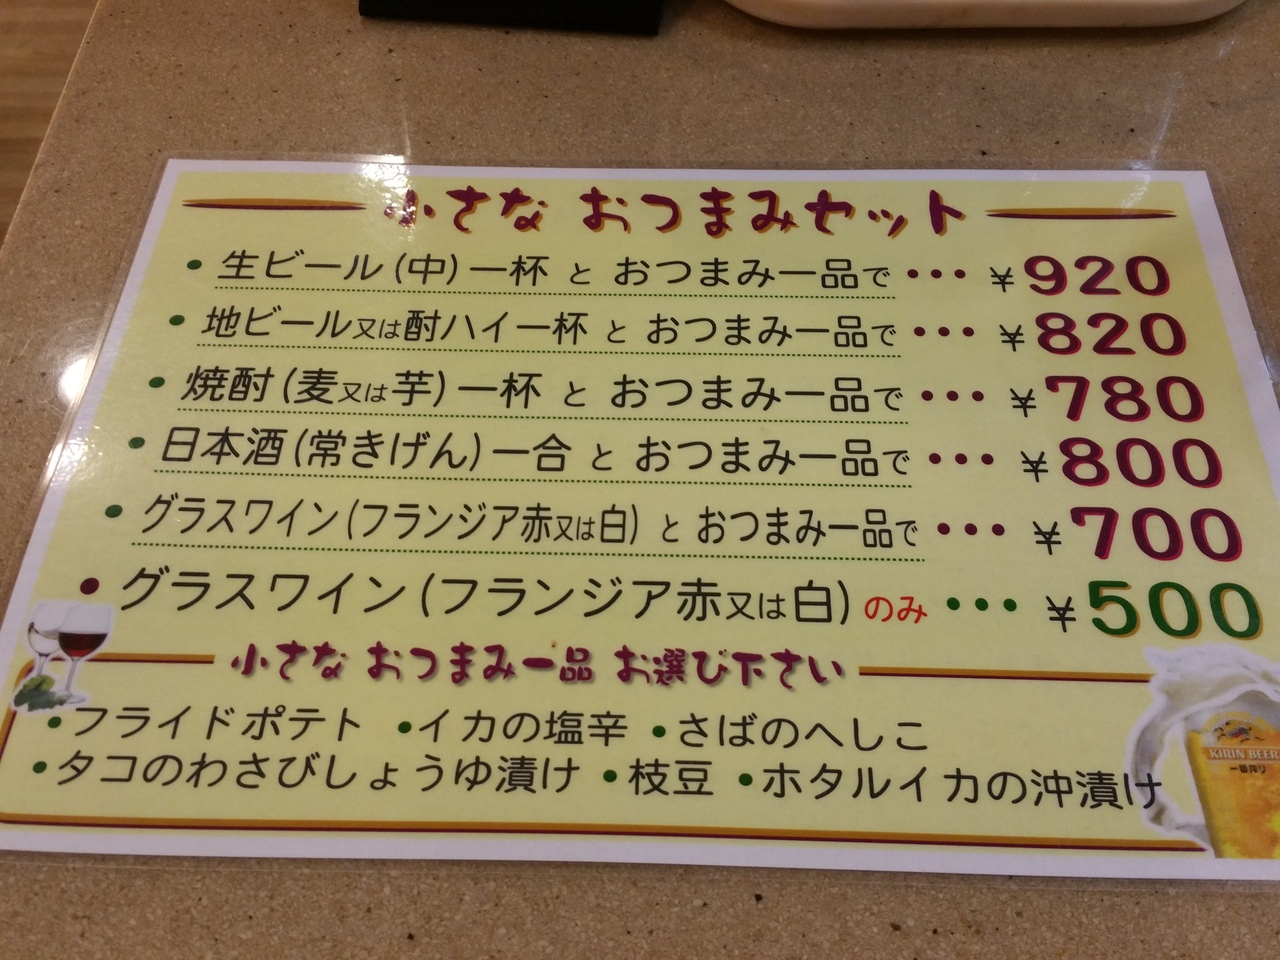 小さな おつまみセット
• 生ビール(中)一杯 と おつまみ一品で・・・ ¥920
• 地ビール又は酎ハイ一杯 と おつまみ一品で・・・ ¥820
• 焼酎(麦又は芋)一杯 と おつまみ一品で・・・ ¥780
• 日本酒(常きげん)一合 と おつまみ一品で・・・ ¥800
• グラスワイン(フランジア赤又は白) と おつまみ一品で・・・ ¥700
• グラスワイン(フランジア赤又は白)のみ・・・ ¥500
小さな おつまみ一品 お選び下さい
•フライドポテト •イカの塩辛 •さばのへしこ
•タコのわさびしょうゆ漬け •枝豆 •ホタルイカの沖漬け
KIRIN BEER
一番搾り